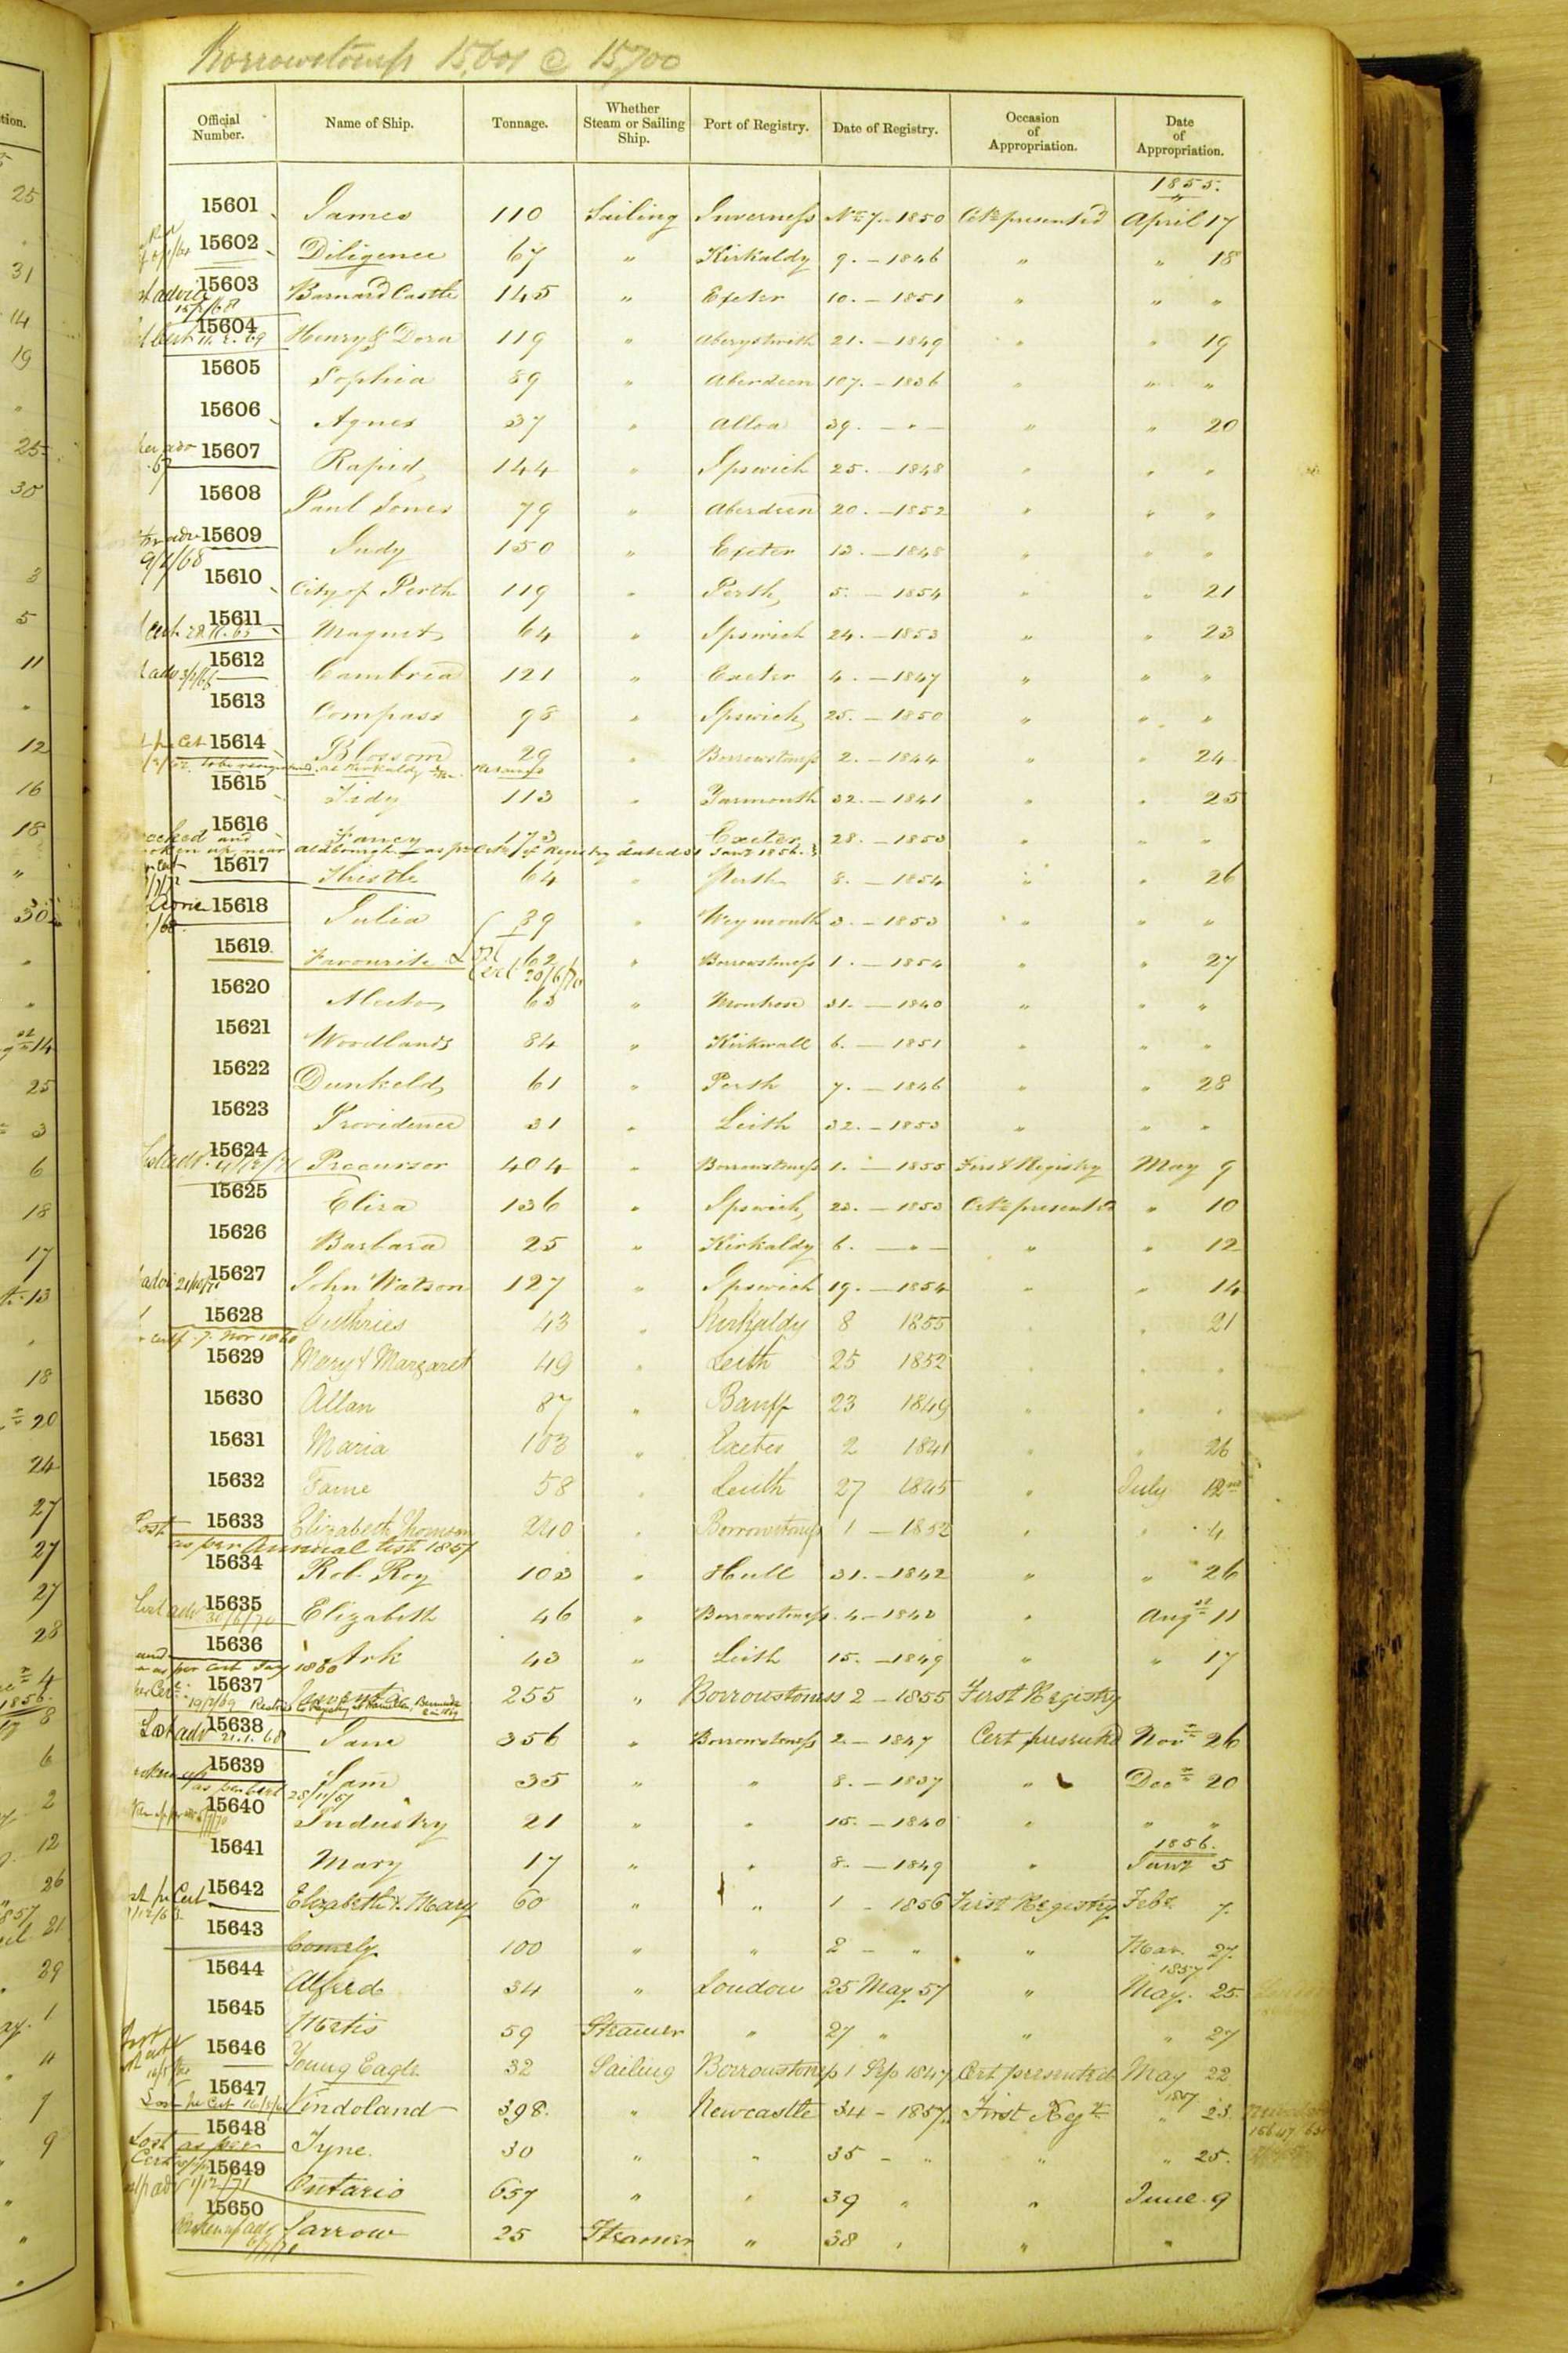 Borrowstoness 15,601 @ 15,700
Official Number. Name of Ship. Tonnage. Whether Steam or Sailing Ship. Port of Registry. Date of Registry. Occasion of Appropriation. Date of Appropriation.
1855.
15601 James 110 Sailing Inverness No 7. - 1850 Cert presented April 17
15602 Diligence 67 " Kirkaldy 9. - 1846 " " 18
15603 Barnard Castle 145 " Exeter 10. - 1851 " " "
15604 Henry & Dora 119 " Aberystwith 21. - 1849 " " 19
15605 Sophia 89 " Aberdeen 107. - 1836 " " "
15606 Agnes 37 " Alloa 39. - " - " " 20
15607 Rapid 144 " Ipswich 25. - 1848 " " "
15608 Paul Jones 79 " Aberdeen 20. - 1852 " " "
15609 Judy 150 " Exeter 13. - 1848 " " "
9/1/68
15610 City of Perth 119 " Perth 5. - 1854 " " 21
15611 Magnet 64 " Ipswich 24. - 1853 " " 23
15612 Cambria 121 " Exeter 4. - 1847 " " "
15613 Compass 98 " Ipswich 25. - 1850 " " "
15614 Blossom 29 " Borrowstoness 2. - 1844 " " 24
15615 Tidy 113 " Yarmouth 32. - 1841 " " 25
15616 Fancy 173 " Exeter 28. - 1853 " " "
up near Aldbrough as per Cert of Registry dated 31 Jany 1856.
15617 Thistle 64 " Perth 8. - 1854 " " 26
15618 Julia 39 " Weymouth 3. - 1853 " " "
15619 Favourite 62 " Borrowstoness 1. - 1854 " " 27
Cert 20/6/70
15620 Alecto 63 " Montrose 31. - 1840 " " "
15621 Woodlands 84 " Kirkwall 6. - 1851 " " "
15622 Dunkeld 61 " Perth 7. - 1846 " " 28
15623 Providence 31 " Leith 32. - 1853 " " "
15624 Precursor 404 " Borrowstoness 1. - 1855 First Registry May 9
15625 Eliza 136 " Ipswich 23. - 1853 Cert presented " 10
15626 Barbara 25 " Kirkaldy 6. - " - " " 12
15627 John Watson 127 " Ipswich 19. - 1854 " " 14
15628 Guthries 43 " Kirkaldy 8 1855 " " 21
15629 Mary & Margaret 49 " Leith 25 1852 " " "
15630 Allan 87 " Banff 23 1849 " " "
15631 Maria 103 " Exeter 2 1841 " " 26
15632 Fame 58 " Leith 27 1845 " July
15633 Elizabeth Thomson 240 " Borrowstoness 1 - 1852 " " 4
Lost as per Annual List 1857
15634 Rob Roy 103 " Hull 31. - 1842 " " 26
15635 Elizabeth 46 " Borrowstoness 4 - 1843 " Augst 11
15636 Ark 43 " Leith 15. - 1849 " " 17
15637 255 " Borrowstoness 2 - 1855 First Registry
15638 Jane 356 " Borrowstoness 2. - 1847 Cert presented Novr 26
Lost adv 21.1.68
15639 Sam 35 " " 8. - 1837 " Decr 20
as per Cert 25/11/57
15640 Industry 21 " " 15. - 1840 " " "
1856.
15641 Mary 17 " " 8. - 1849 " Jany 5
15642 Elizabeth & Mary 60 " " 1 - 1856 First Registry Feby 7.
15643 Comely 100 " " 2 - " " Mar. 27.
1857
15644 Alfred 34 " London 25 May 57 " May. 25.
15645 59 Steamer " 27 " " " 27
15646 Young Eagle 32 Sailing Borrowstoness 1 Sep 1847 Cert presented May 22
1857
15647 Vindoland 398. " Newcastle 34 - 1857. First Regy " 23.
15648 Tyne. 30 " " 35 - " " " 25.
Lost as per Cert
15649 Ontario 657 " " 39 " " June 9
15650 Jarrow 25 Steamer " 38 " " "